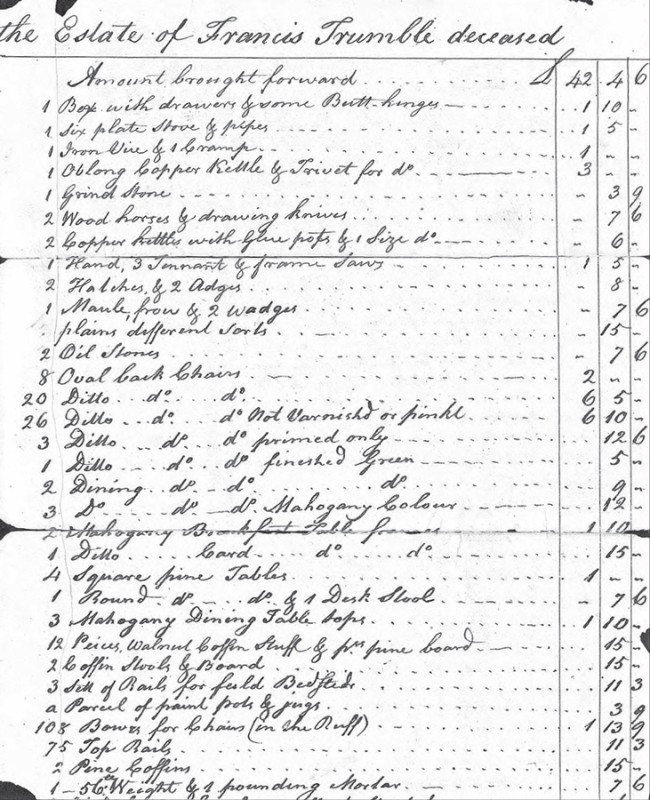 the Estate of Francis Trumble deceased
Amount brought forward £ 42 4 6
1 Box with drawers & some Butt hinges 1 10 -
1 Six plate Stove & pipes 1 5 -
1 Iron Vice & 1 Cramp 1 - -
1 Oblong Copper Kettle & Trivet for do 3 - -
1 Grind Stone - 3 9
2 Wood horses & drawing knives - 7 6
2 Copper kettles with Glue pots & 1 Size do - 6 -
1 Hand, 3 Tennant & frame Saws 1 5 -
2 Hatches, & 2 Adges - 8 -
1 Maule, frow & 2 wadges - 7 6
plains different sorts - 15 -
2 Oil Stones - 7 6
8 Oval back Chairs 2 - -
20 Ditto do do 6 5 -
26 Ditto do do Not Varnishd or 6 10 -
3 Ditto do do primed only - 12 6
1 Ditto do do fineshed Green - 5 -
2 Dining do do do - 9 -
3 Do do do Mahogany Colour - 12 -
2 Mahogany Breakfast Table frames 1 10 -
1 Ditto Card do do - 15 -
4 Square pine Tables 1 - -
1 Round do do & 1 Desk Stool - 7 6
3 Mahogany Dining Table tops 1 10 -
12 Peices, Walnut Coffin Stuff & pine board - 15 -
2 Coffin Stools & Board - 15 -
3 Sett of Rails for feild Bedsteds - 11 3
a Parcel of paint pots & jugs - 3 9
108 Bows for Chairs (in the Ruff) 1 13 9
75 Top Rails - 11 3
2 Pine Coffins - 15 -
1 - 56 Weight & 1 pounding Mortar - 7 6